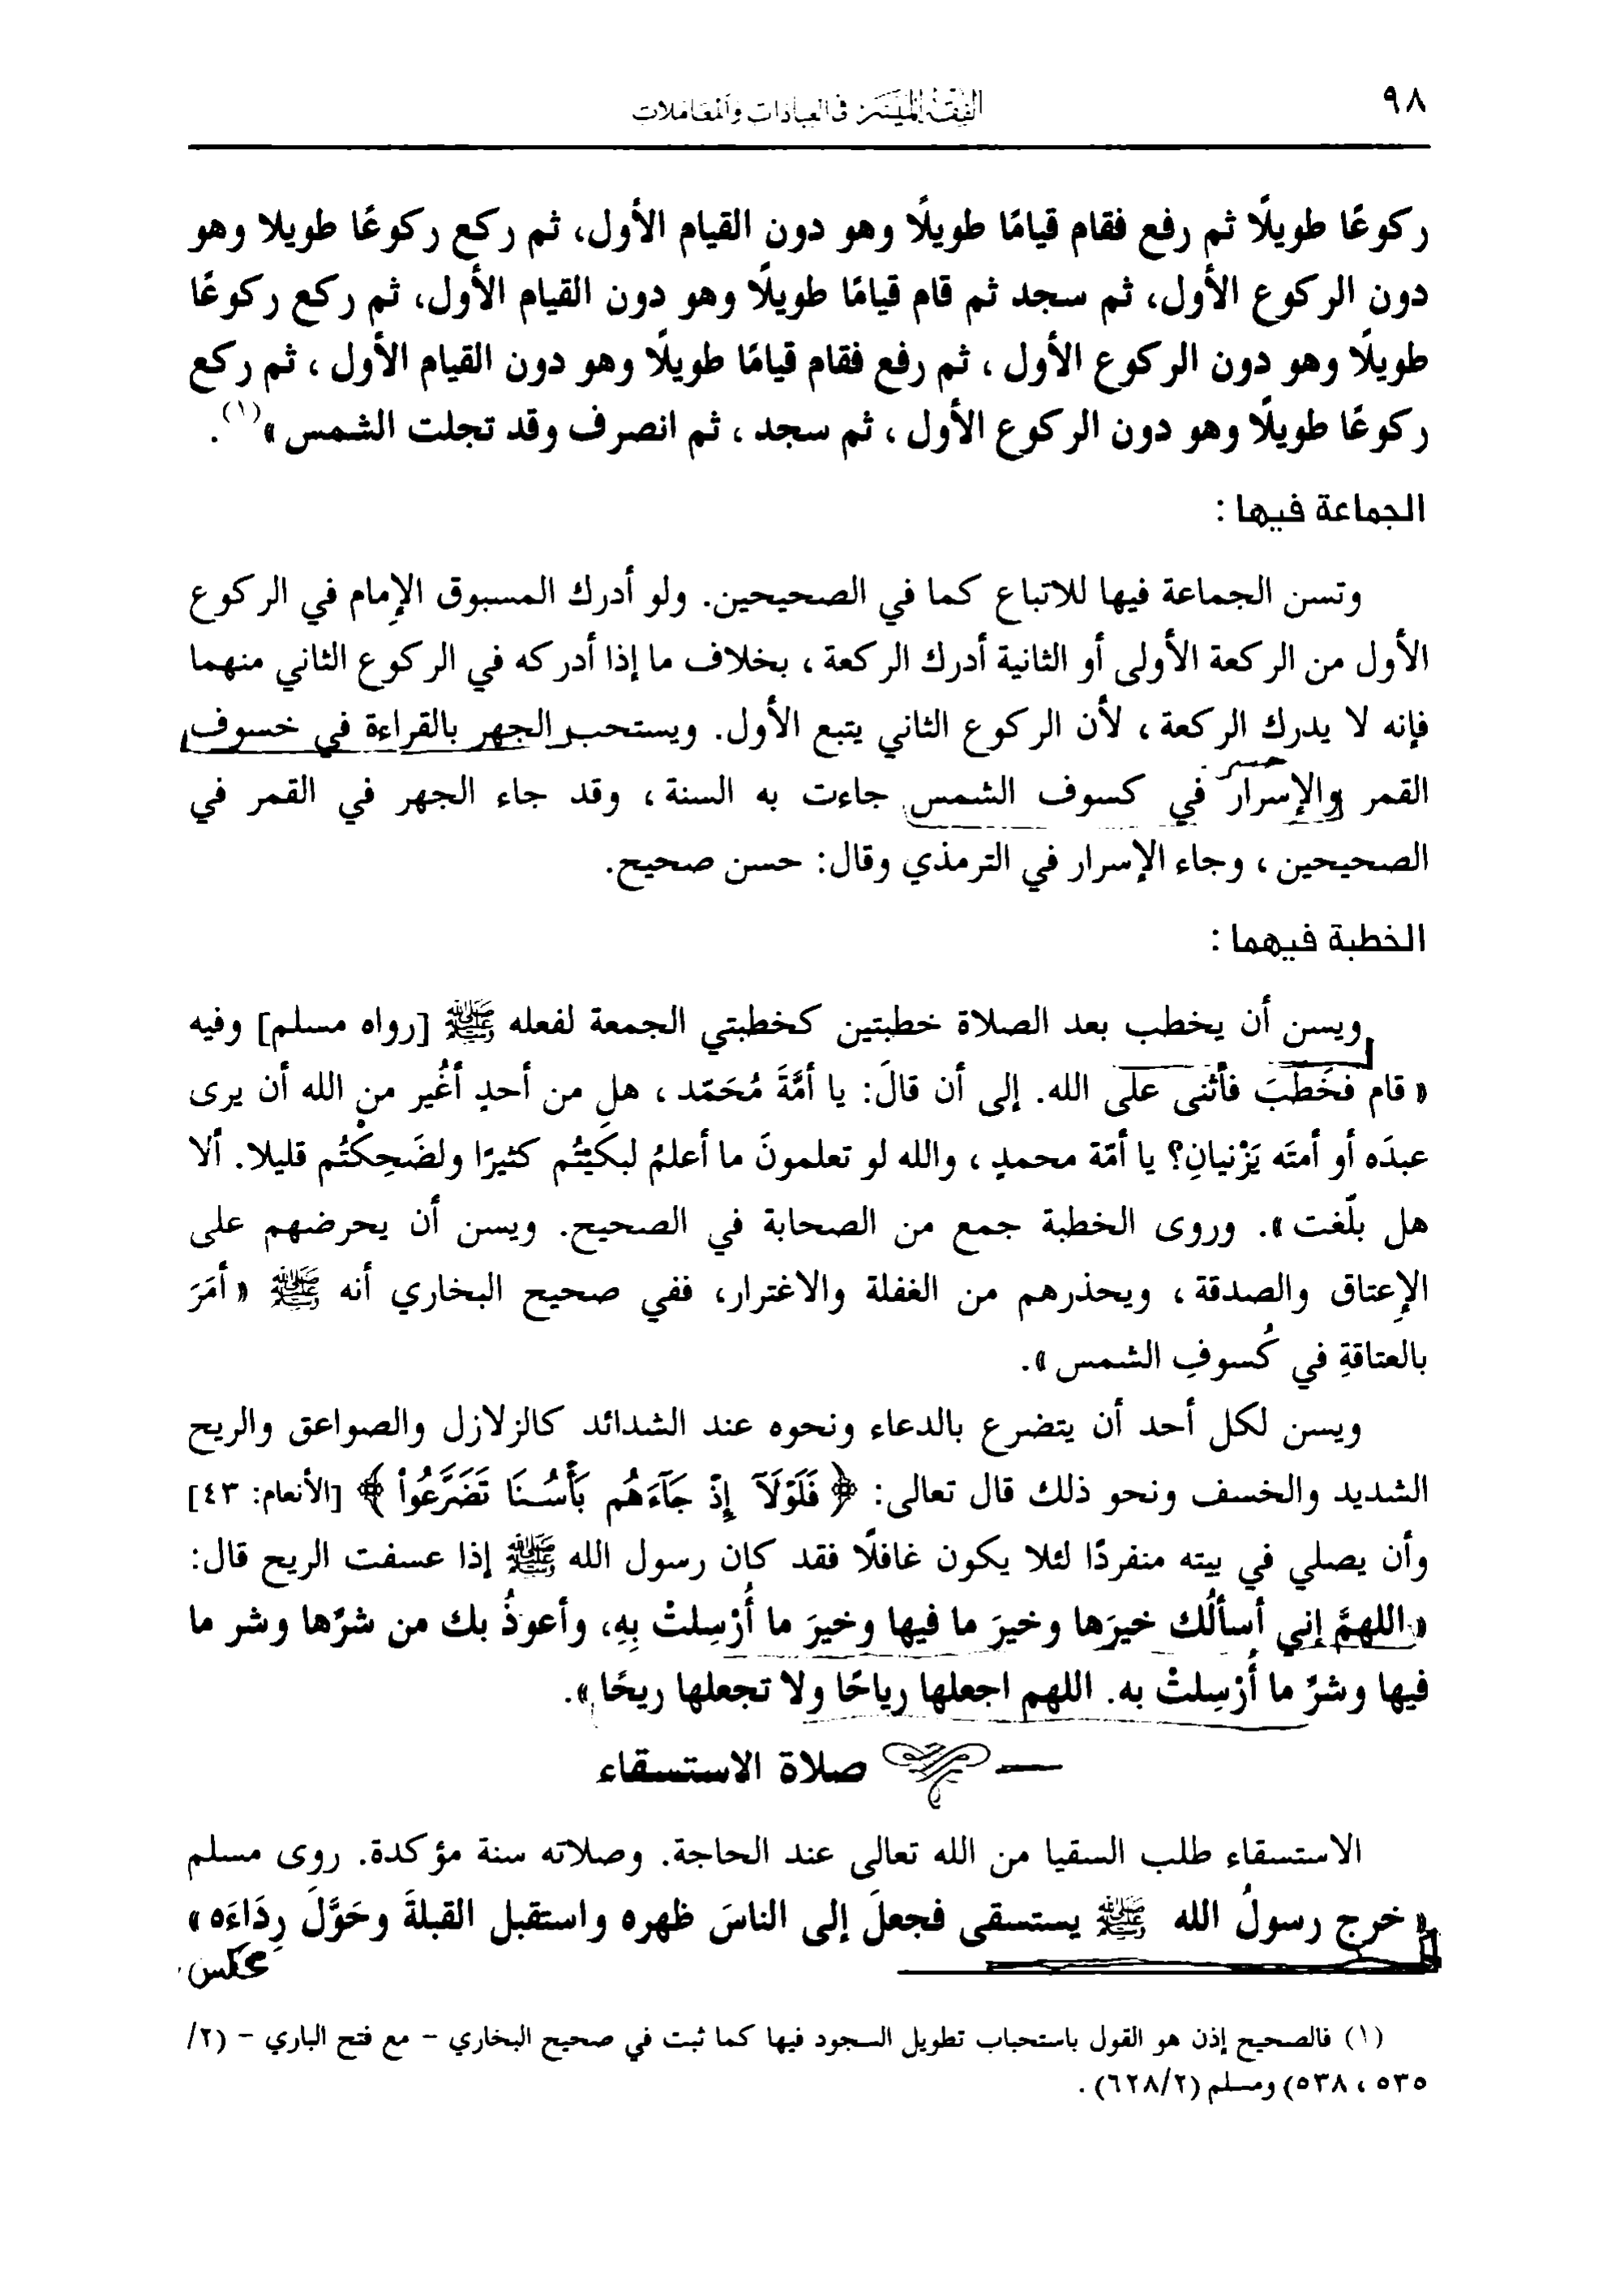 ٩٨
الفقه الميسر في العبادات والمعاملات
ركوعًا طويلًا ثم رفع فقام قيامًا طويلًا وهو دون القيام الأول، ثم ركع ركوعًا طويلا وهو
دون الركوع الأول، ثم سجد ثم قام قيامًا طويلًا وهو دون القيام الأول، ثم ركع ركوعًا
طويلًا وهو دون الركوع الأول ، ثم رفع فقام قيامًا طويلًا وهو دون القيام الأول ، ثم ركع
ركوعًا طويلًا وهو دون الركوع الأول ، ثم سجد ، ثم انصرف وقد تجلت الشمس »(١).
الجماعة فيها :
وتسن الجماعة فيها للاتباع كما في الصحيحين. ولو أدرك المسبوق الإمام في الركوع
الأول من الركعة الأولى أو الثانية أدرك الركعة ، بخلاف ما إذا أدركه في الركوع الثاني منهما
فإنه لا يدرك الركعة ، لأن الركوع الثاني يتبع الأول. ويستحب الجهر بالقراءة في خسوف
القمر والإسرار في كسوف الشمس جاءت به السنة ، وقد جاء الجهر في القمر في
الصحيحين ، وجاء الإسرار في الترمذي وقال: حسن صحيح.
الخطبة فيهما :
ويسن أن يخطب بعد الصلاة خطبتين كخطبتي الجمعة لفعله ﷺ [رواه مسلم] وفيه
« قام فخَطَبَ فأثنى على الله. إلى أن قالَ: يا أمَّةَ مُحَمّد ، هلِ من أحدٍ أغُير منِ الله أن يرى
عبدَه أو أمتَه يَزْنيانِ؟ يا أمّة محمدٍ ، والله لو تعلمونَ ما أعلمُ لبكَيْتُم كثيرًا ولضَحِكْتُم قليلا. ألا
هل بلّغت ». وروى الخطبة جمع من الصحابة في الصحيح. ويسن أن يحرضهم على
الإعتاق والصدقة ، ويحذرهم من الغفلة والاغترار، ففي صحيح البخاري أنه ﷺ « أمَرَ
بالعتاقةِ في كُسوفِ الشمس ».
ويسن لكل أحد أن يتضرع بالدعاء ونحوه عند الشدائد كالزلازل والصواعق والريح
الشديد والخسف ونحو ذلك قال تعالى: ﴿ فَلَوْلَآ إِذْ جَآءَهُم بَأْسُنَا تَضَرَّعُواْ ﴾ [الأنعام: ٤٣]
وأن يصلي في بيته منفردًا لئلا يكون غافلًا فقد كان رسول الله ﷺ إذا عسفت الريح قال:
« اللهمَّ إني أسألُك خيرَها وخيرَ ما فيها وخيرَ ما أُرْسِلتْ بِهِ، وأعوذُ بك من شرِّها وشر ما
فيها وشرِّ ما أُرْسِلتْ به. اللهم اجعلها رياحًا ولا تجعلها ريحًا ».
صلاة الاستسقاء
الاستسقاء طلب السقيا من الله تعالى عند الحاجة. وصلاته سنة مؤكدة. روى مسلم
« خرج رسولُ الله ﷺ يستسقى فجعلَ إلى الناسَ ظهره واستقبل القبلةَ وحَوَّلَ رِدَاءَه »
عكس
(١) فالصحيح إذن هو القول باستحباب تطويل السجود فيها كما ثبت في صحيح البخاري – مع فتح الباري – (٢/
٥٣٥ ، ٥٣٨) ومسلم (٦٢٨/٢) .